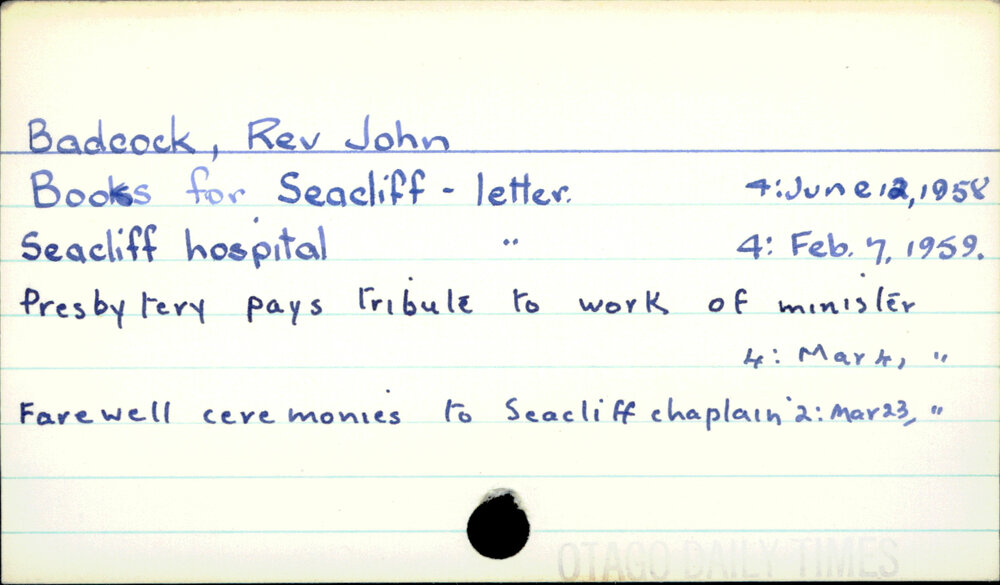 Badcock, Rev John
Books for Seacliff - letter. 4: June 12, 1958
Seacliff hospital " 4: Feb. 7, 1959.
Presbytery pays tribute to work of minister
4: Mar 4, "
Farewell ceremonies to Seacliff chaplain 2: Mar 23, "
OTAGO DAILY TIMES